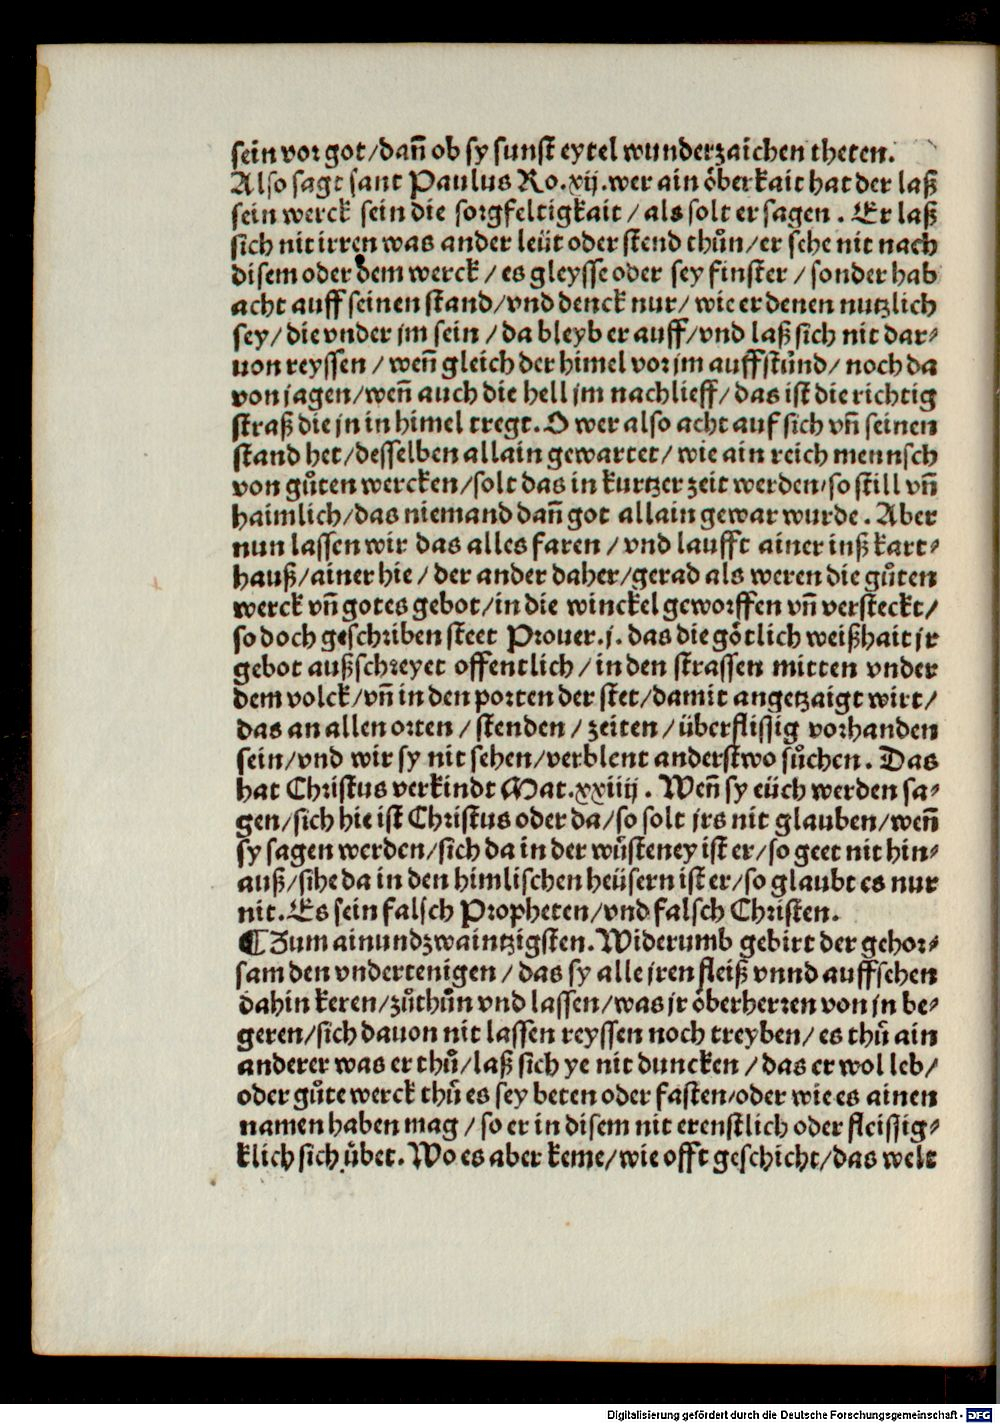 sein vor got/dañ ob sy sunst eytel wunderzaichen theten.
Also sagt sant Paulus Ro.xij.wer ain öberkait hat der laß
sein werck sein die sorgfeltigkait / als solt er sagen . Er laß
sich nit irren was ander leüt oder stend thůn/er sehe nit nach
disem oder dem werck / es gleysse oder sey finster / sonder hab
acht auff seinen stand/vnd denck nur/ wie er denen nutzlich
sey/ die vnder jm sein / da bleyb er auff/vnd laß sich nit dar⸗
uon reyssen / weñ gleich der himel vor jm auffstůnd/ noch da
von jagen/weñ auch die hell jm nachlieff/ das ist die richtig
straß die jn in himel tregt. O wer also acht auf sich vñ seinen
stand het/desselben allain gewartet/ wie ain reich mennsch
von gůten wercken/solt das in kurtzer zeit werden/so still vñ
haimlich/das niemand dañ got allain gewar wurde. Aber
nun lassen wir das alles faren / vnd laufft ainer inß kart⸗
hauß/ainer hie / der ander daher/gerad als weren die gůten
werck vñ gotes gebot/in die winckel geworffen vñ versteckt/
so doch geschriben steet Prouer.j. das die götlich weißhait jr
gebot außschreyet offentlich / in den strassen mitten vnder
dem volck/vñ in den porten der stet/damit angetzaigt wirt/
das an allen orten / stenden / zeiten / überflissig vorhanden
sein/vnd wir sy nit sehen/verblent anderstwo sůchen. Das
hat Christus verkindt Mat.xxiiij . Weñ sy eüch werden sa⸗
gen/sich hie ist Christus oder da/so solt jrs nit glauben/weñ
sy sagen werden/sich da in der wůsteney ist er/so geet nit hin⸗
auß/sihe da in den himlischen heüsern ist er/so glaubt es nur
nit. Es sein falsch Propheten/vnd falsch Christen.
¶ Zum ainundzwaintzigsten. Widerumb gebirt der gehor⸗
sam den vndertenigen / das sy alle jren fleiß vnnd auffsehen
dahin keren/zůthůn vnd lassen/was jr öberherren von jn be⸗
geren/sich dauon nit lassen reyssen noch treyben/ es thů ain
anderer was er thů/laß sich ye nit duncken / das er wol leb/
oder gůte werck thů es sey beten oder fasten/oder wie es ainen
namen haben mag / so er in disem nit erenstlich oder fleissig⸗
klich sich übet. Wo es aber keme/wie offt geschicht/das welt
Digitalisierung gefördert durch die Deutsche Forschungsgemeinschaft - DFG